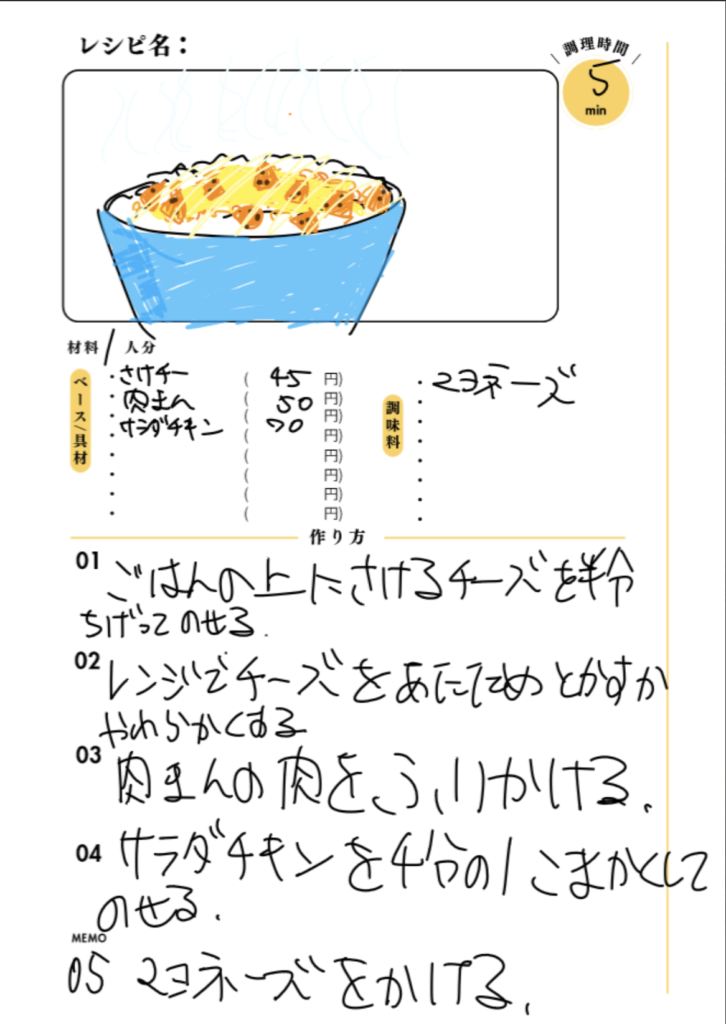 レシピ名：
調理時間
5
min
材料 1 人分
ベース/具材
・さけチー ( 45 円)
・肉まん ( 50 円)
・サラダチキン ( 70 円)
・ ( 円)
・ ( 円)
・ ( 円)
・ ( 円)
・ ( 円)
調味料
・マヨネーズ
・
・
・
・
・
・
・
作り方
01 ごはんの上にさけるチーズを半分
ちぎってのせる.
02 レンジでチーズをあたためとかすか
やわらかくする
03 肉まんの肉をふりかける.
04 サラダチキンを4分の1こまかくして
のせる.
MEMO
05 マヨネーズをかける.